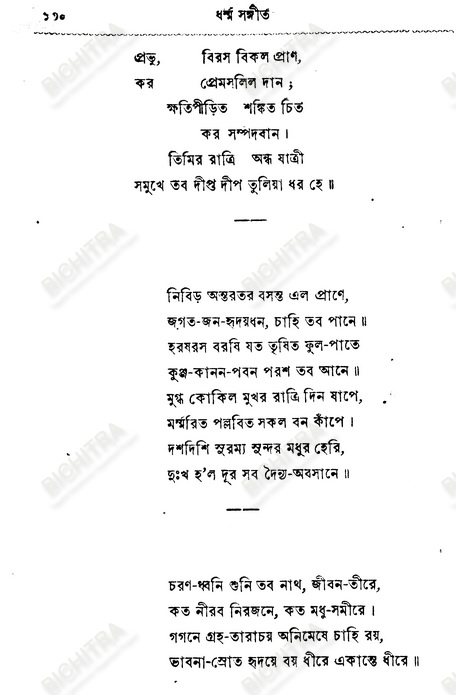 ১১০ ধর্ম্ম সঙ্গীত
প্রভু, বিরস বিকল প্রাণ,
কর প্রেমসলিল দান ;
ক্ষতিপীড়িত শঙ্কিত চিত
কর সম্পদবান।
তিমির রাত্রি অন্ধ যাত্রী
সমুখে তব দীপ্ত দীপ তুলিয়া ধর হে॥
নিবিড় অন্তরতর বসন্ত এল প্রাণে,
জগত-জন-হৃদয়ধন, চাহি তব পানে॥
হরষরস বরষি যত তৃষিত ফুল-পাতে
কুঞ্জ-কানন-পবন পরশ তব আনে॥
মুগ্ধ কোকিল মুখর রাত্রি দিন যাপে,
মর্ম্মরিত পল্লবিত সকল বন কাঁপে।
দশদিশি সুরম্য সুন্দর মধুর হেরি,
দুঃখ হ'ল দূর সব দৈন্য-অবসানে॥
চরণ-ধ্বনি শুনি তব নাথ, জীবন-তীরে,
কত নীরব নিরজনে, কত মধু-সমীরে।
গগনে গ্রহ-তারাচয় অনিমেষে চাহি রয়,
ভাবনা-স্রোত হৃদয়ে বয় ধীরে একান্তে ধীরে॥
BICHITRA
BICHITRA
BICHITRA
BICHITRA
BICHITRA
BICHITRA
BICHITRA
BICHITRA